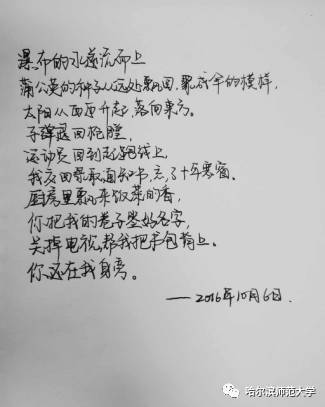 瀑布的水逆流而上
蒲公英的种子从远处飘回,聚成伞的模样,
太阳从西边升起,落向东方。
子弹退回枪膛,
运动员回到起跑线上,
我交回录取通知书,忘了十年寒窗。
厨房里飘来饭菜的香,
你把我的卷子签好名字,
关掉电视,帮我把书包背上。
你还在我身旁。
——2016年10月6日.
哈尔滨师范大学